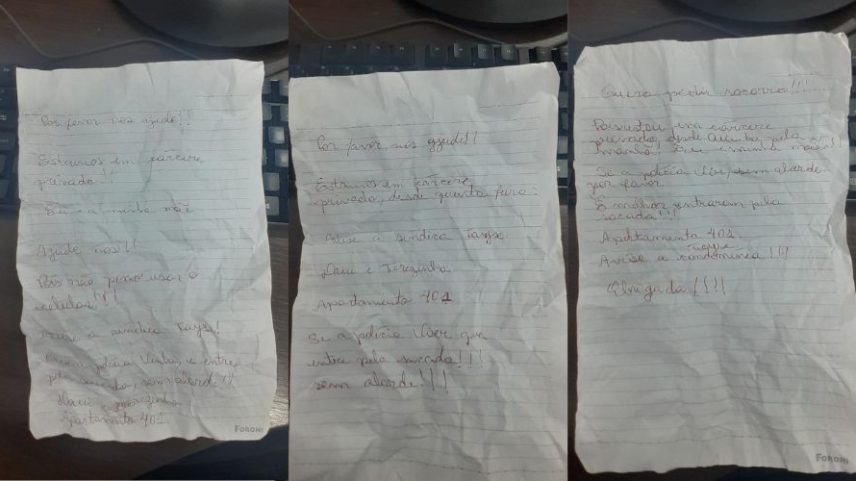 Por favor nos ajude!!
Estamos em cárcere
privado!!
Eu e a minha mãe
Ajude nos!!!
Pois não posso usar o
celular!!!
Avise a síndica Tayse!
e entre
pela sacada, sem alarde!!!
e Terezinha
Apartamento 401
FORONI
Por favor nos ajude!!
Estamos em cárcere
privado, desde quarta feira:
Avise a síndica Tayse
e Terezinha
Apartamento 401
Se a polícia vier que
entre pela sacada!!!
sem alarde!!!
Quero pedir socorro!!!
Pois estou em cárcere
privado, desde pela
manhã! Eu e minha mãe!!
Se a polícia vier sem alarde
por favor
É melhor entrarem pela
sacada!!!
Apartamento 401
Avise a !!!
Obrigada!!!!
FORONI